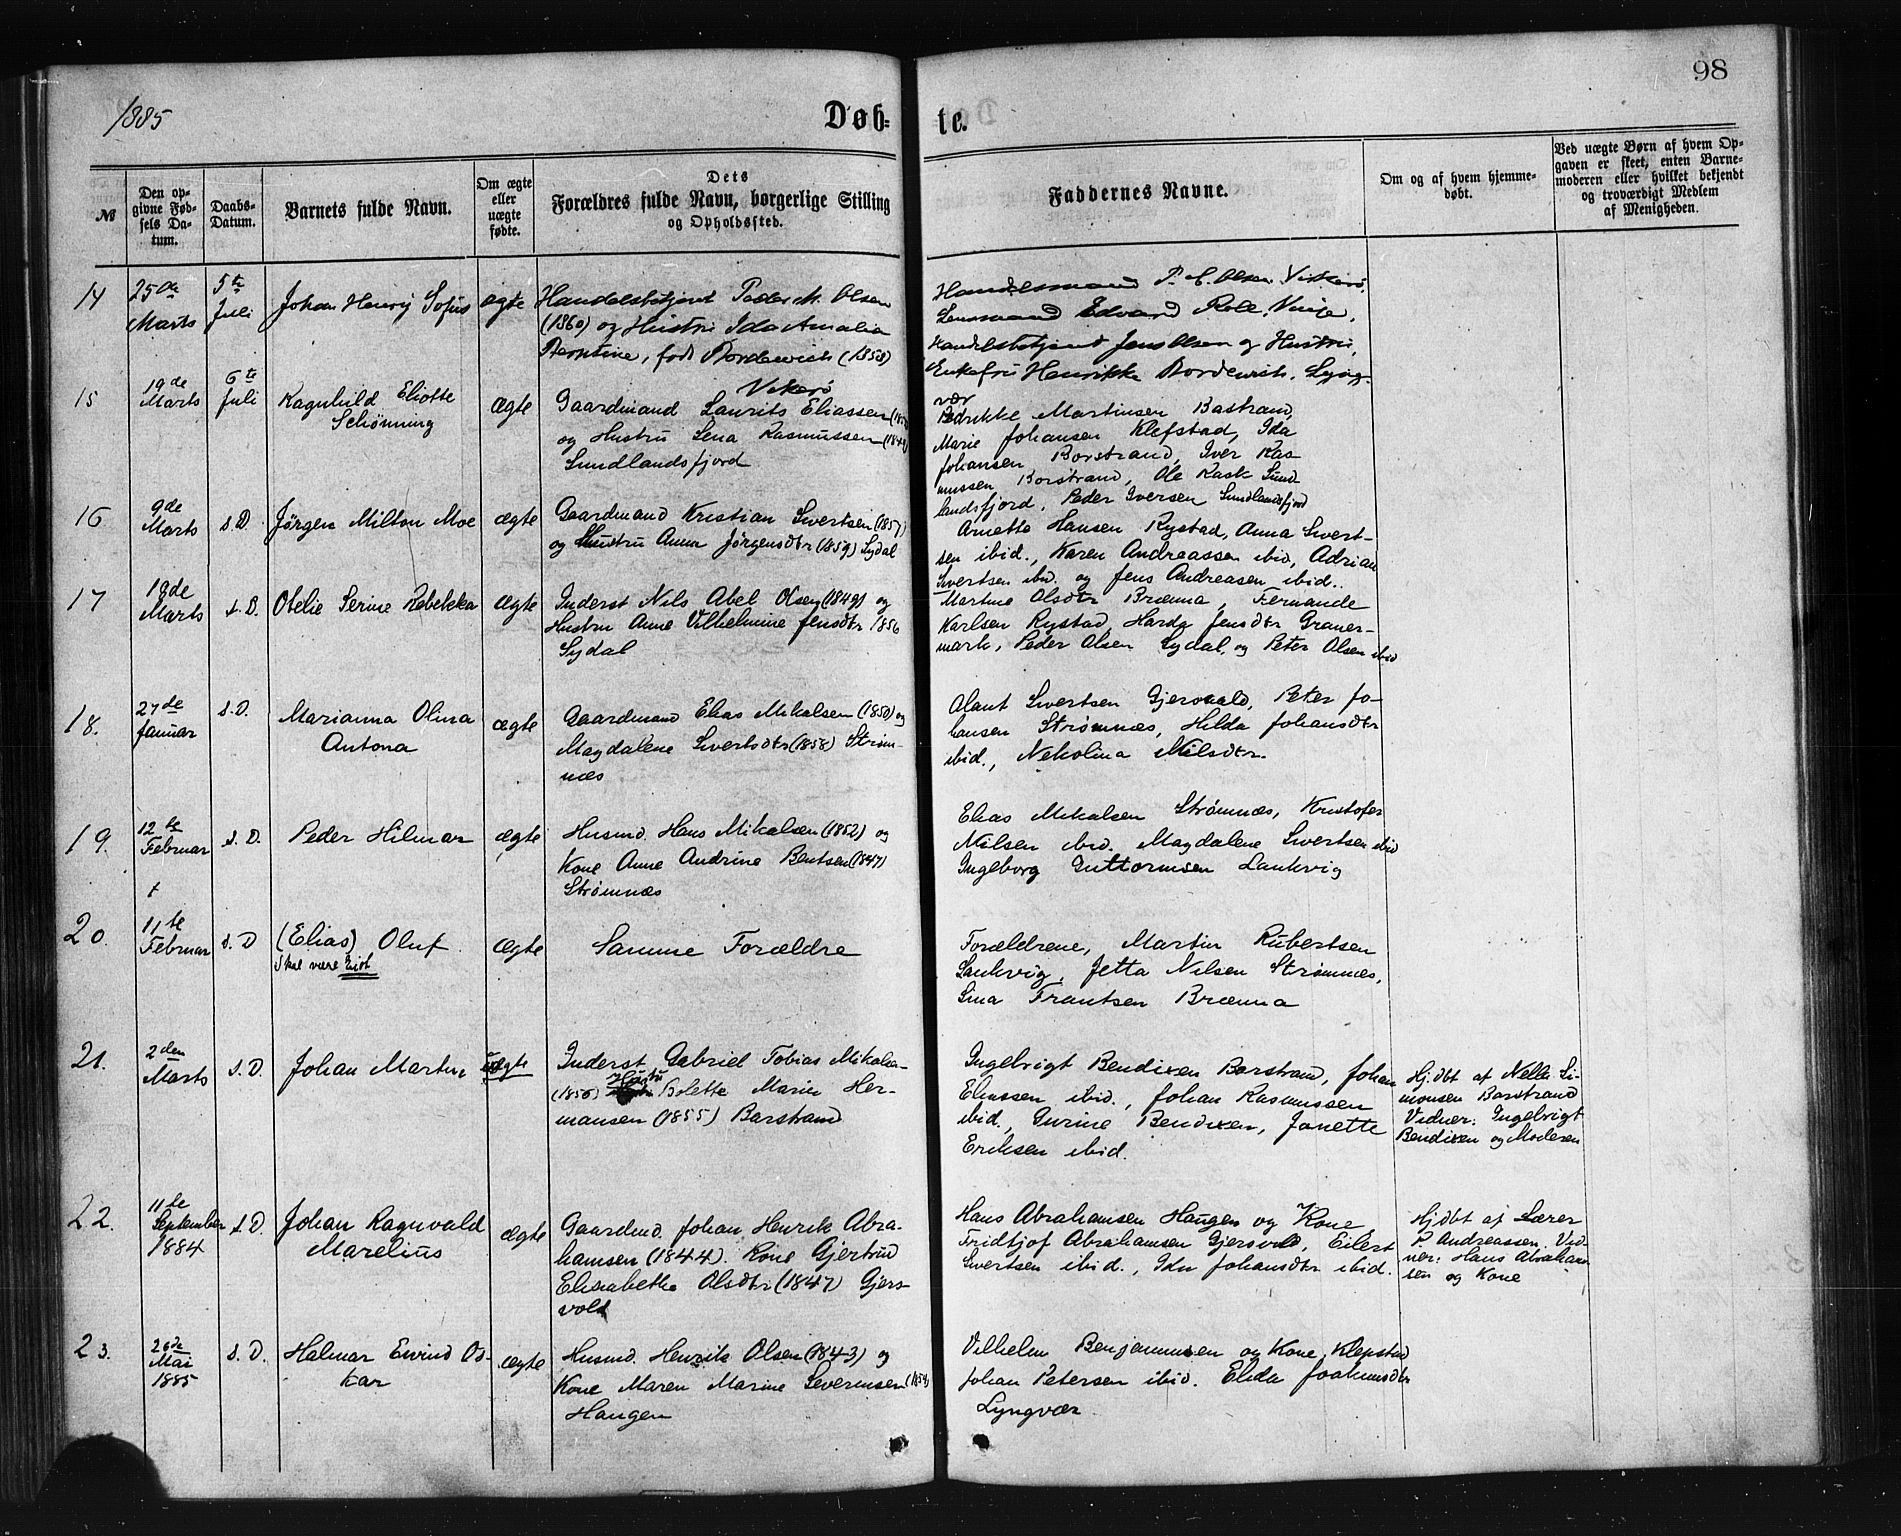 1885
Døb-
te.
98
№
Den op-
givne Fød-
sels Da-
tum.
Daabs-
Datum.
Barnets fulde Navn.
Om ægte
eller
uægte
fødte.
Dets
Forældres fulde Navn, borgerlige Stilling
og Opholdssted.
Faddernes Navne.
Om og af hvem hjemme-
døbt.
Ved uægte Børn af hvem Op-
gaven er skeet, enten Barne-
moderen eller hvilket bekjendt
og troværdigt Medlem
af Menigheden.
14
25de
Marts
5te
Juli
Johan Henrij Sofus
ægte
Handelsbetjent Peder M. Olsen
(1860) og Hustru Ida Amalia
Berntine, født Bordewich (1858)
Vikerø
Handelsmand P. C. Olsen Vikerø,
Lensmand Edvard Roll, Vinje,
Handelsbetjent Jens Olsen og Hustru,
Enkefru Henrikke Bordewich, Lyng-
vær
15
19de
Marts
6te
Juli
Ragnhild Eliotte
Schønning
ægte
Gaardmand Laurits Eliassen
og Hustru Lena Rasmussen
Sundlandsfjord
Pedrikke Martinsen Bastrand,
Marie Johansen Klefstad, Ida
Johansen Borstrand, Iver Ras-
mussen Borstrand, Ole Rask Sund-
landsfjord, Peder Iversen Sundlandsfjord
16
9de
Marts
s.D.
Jørgen Milton Moe
ægte
Gaardmand Kristian Sivertsen (1857)
og Hustru Anna Jørgensdtr (1859) Sydal
Anette Hansen Rystad, Anna Sivert-
sen ibid., Karen Andreassen ibid, Adrian
Sivertsen ibid. og Jens Andreasen ibid..
17
18de
Marts
s.D.
Otelie Serine Rebekka
ægte
Inderst Nils Abel Olsen (1849) og
Hustru Anne Vilhelmine Jensdtr 1856
Sydal
Martine Olsdtr Brænna, Fernande
Karlsen Rystad, Harda Jensdtr Graner-
mark, Peder Olsen Sydal, og Peter Olsen ibid
18.
27de
Januar
s.D.
Marianna Olina
Antona
ægte
Gaardmand Elias Mikalsen (1850) og
Magdalene Sivertsdtr (1858) Strøm-
næs
Olaut Sivertsen Gjersvold, Peter Jo-
hansen Strømnæs, Hilda Johansdtr
ibid., Nekolina Nilsdtr.
19.
12te
Februar
s.D.
Peder Hilmar
ægte
Husmd. Hans Mikalsen (1852) og
Kone Anne Andrine Bentsen (1847)
Strømnæs
Elias Mikalsen Strømnæs, Kristofer
Nilsen ibid. Magdalene Sivertsen ibid
Ingeborg Guttormsen Laukvig
20.
†
11te
Februar
s.D
(Elias) Oluf
skal være
ægte
Samme Forældre
Forældrene, Martin Rubertsen
Laukvig, Jetta Nilsen Strømnæs,
Lina Frantsen Brænna
21.
2den
Marts
s.D.
Johan Martin
uægte
Inderst Gabriel Tobias Mikalsen
(1856) Hustru Bolette Marie Her-
mansen (1855) Barstrand
Ingebrigt Bendixen Borstrand, Johan
Eliassen ibid., Johan Rasmussen
ibid., Gurine Bendixen, Janette
Eriksen ibid.
Hj.dbt af Nella Si-
monsen Barstrand
Vidner: Ingebrigt
Bendixen og Moderen
22.
11te
September
1884
s.D.
Johan Ragnvald
Marelius
ægte
Gaardmd. Johan Henrik Abra-
hamsen (1844). Kone Gjertrud
Elisabetha Olsdtr (1847) Gjers-
vold
Hans Abrahamsen Haugen og Kone,
Fridtjof Abrahamsen Gjersvold, Eilert
Sivertsen ibid., Ida Johansdtr ibid.
Hj.dbt af Lærer
P. Andreassen. Vid-
ner: Hans Abraham-
sen og Kone
23.
26de
Mai
1885
s.D.
Halmar Eivind Os-
kar
ægte
Husmd. Henrik Olsen (1843) og
Kone Maren Marine Severinsen (1854)
Haugen
Vilhelm Benjaminsen og Kone, Klepstad
Johan Petersen ibid. Elida Joakimsdtr
Lyngvær